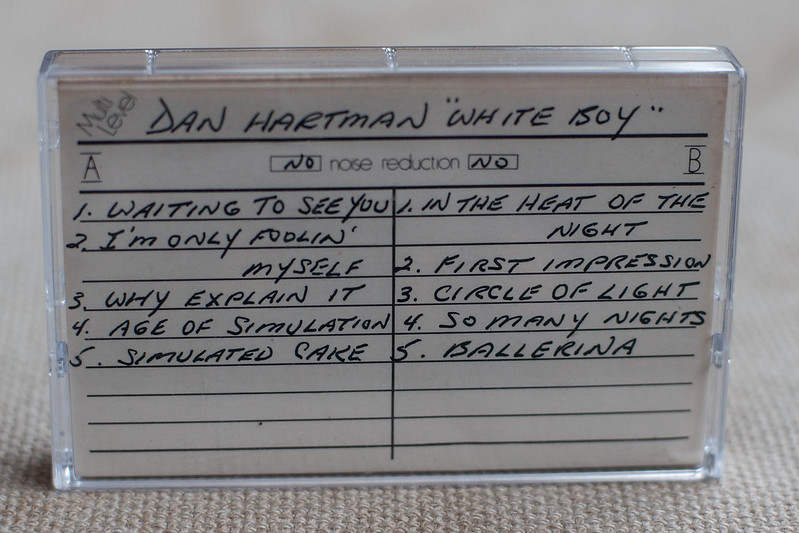 Multi
Level
DAN HARTMAN "WHITE BOY"
A NO noise reduction NO B
1. WAITING TO SEE YOU
2. I'm ONLY FOOLIN'
MYSELF
3. WHY EXPLAIN IT
4. AGE OF SIMULATION
5. SIMULATED CAKE
1. IN THE HEAT OF THE
NIGHT
2. FIRST IMPRESSION
3. CIRCLE OF LIGHT
4. SO MANY NIGHTS
5. BALLERINA